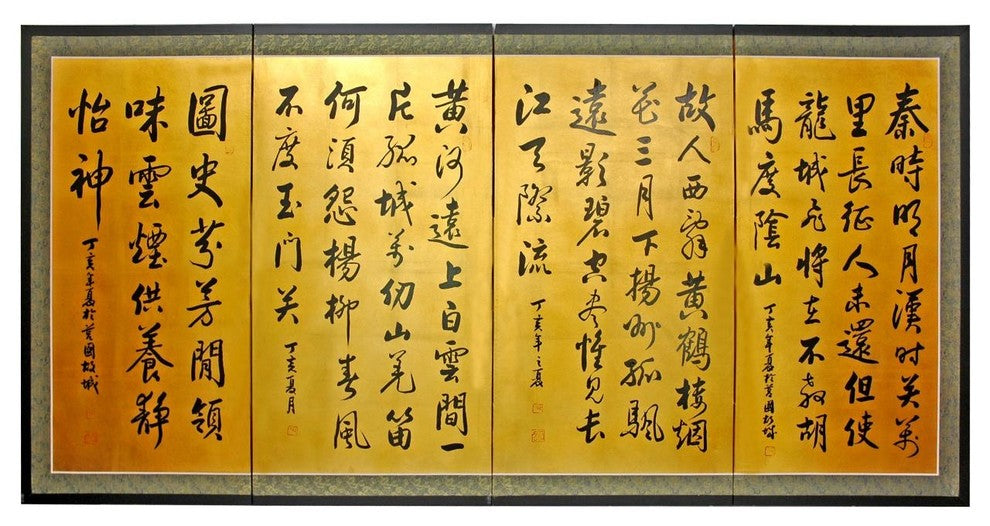 秦時明月漢时关萬
里長征人未還但使
龍城飛將在不教胡
馬度陰山
丁亥年夏於莒國故城
故人西辭黄鶴楼烟
花三月下揚州孤颿
遠影碧空尽惟見长
江天際流
丁亥年之夏
黄河遠上白雲間一
片孤城萬仞山羌笛
何須怨楊柳春風
不度玉门关
丁亥夏月
圖史芬芳閒領
味雲煙供養靜
怡神
丁亥年夏於莒國故城